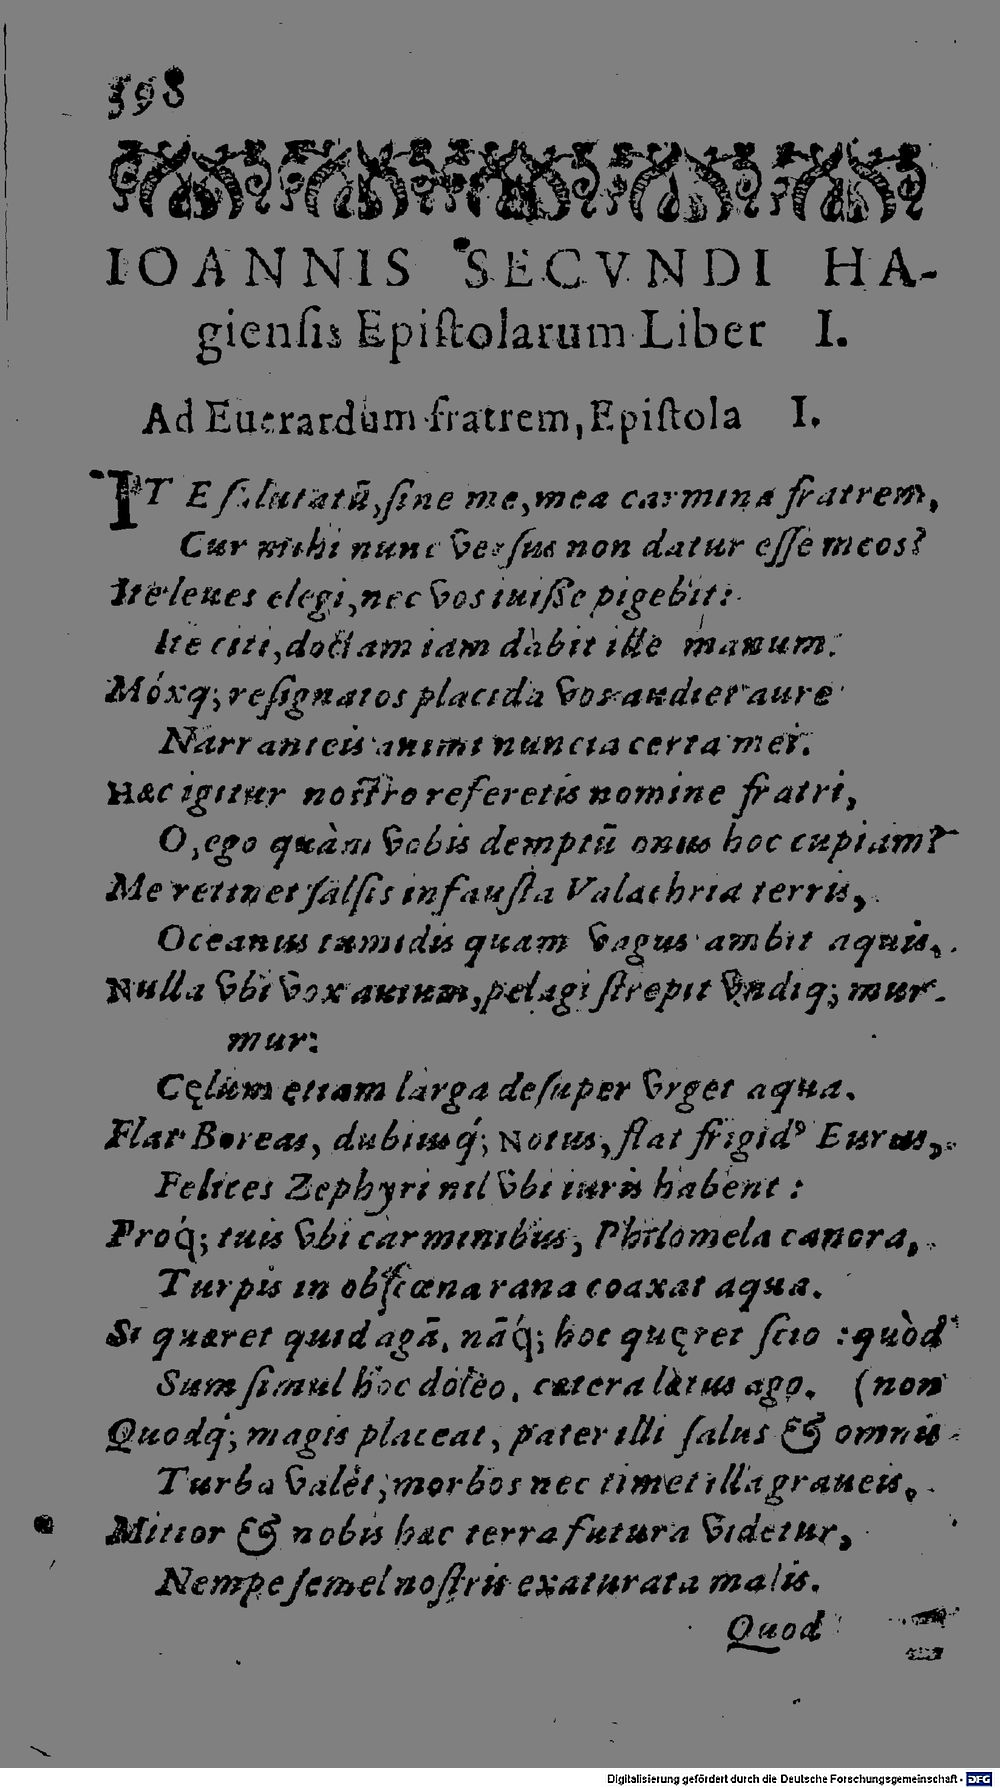 398
IOANNIS SECVNDI HA-
gienſis Epiſtolarum Liber I.
Ad Euerardum fratrem, Epiſtola I.
ITE ſalutatū, ſine me, mea carmina fratrem,
Cur mihi nunc verſus non datur eſſe meos?
Ite leues elegi, nec vos iuiſſe pigebit:
Ite citi, doctam iam dabit ille manum.
Móxq; reſignatos placida vos audiet aure
Narranteis animi nuncia certa mei.
Hæc igitur noſtro referetis nomine fratri,
O, ego quàm vobis demptū onus hoc cupiam?
Me retinet ſalſis infauſta Valachria terris,
Oceanus tumidis quam vagus ambit aquis.
Nulla vbi vox auium, pelagi ſtrepit vndiq; mur-
mur:
Cęlum etiam larga deſuper vrget aqua.
Flat Boreas, dubiusq́; Notus, flat frigidꝰ Eurus,
Felices Zephyri nil vbi iuris habent:
Proq́; tuis vbi carminibus, Philomela canora,
Turpis in obſcœna rana coaxat aqua.
Si quæret quid agā, nāq́; hoc quęret ſcio: quòd
Sum ſimul hoc doleo, cætera lætus ago. (non
Quodq́; magis placeat, pater illi ſalus & omnis
Turba valet, morbos nec timet illa graueis.
Mitior & nobis hæc terra futura videtur,
Nempe ſemel noſtris exaturata malis.
Quod
Digitalisierung gefördert durch die Deutsche Forschungsgemeinschaft - DFG